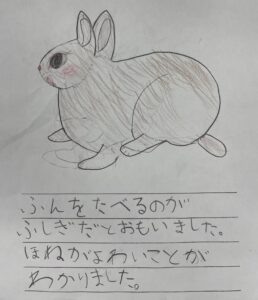 ふんをたべるのが
ふしぎだとおもいました。
ほねがよわいことが
わかりました。